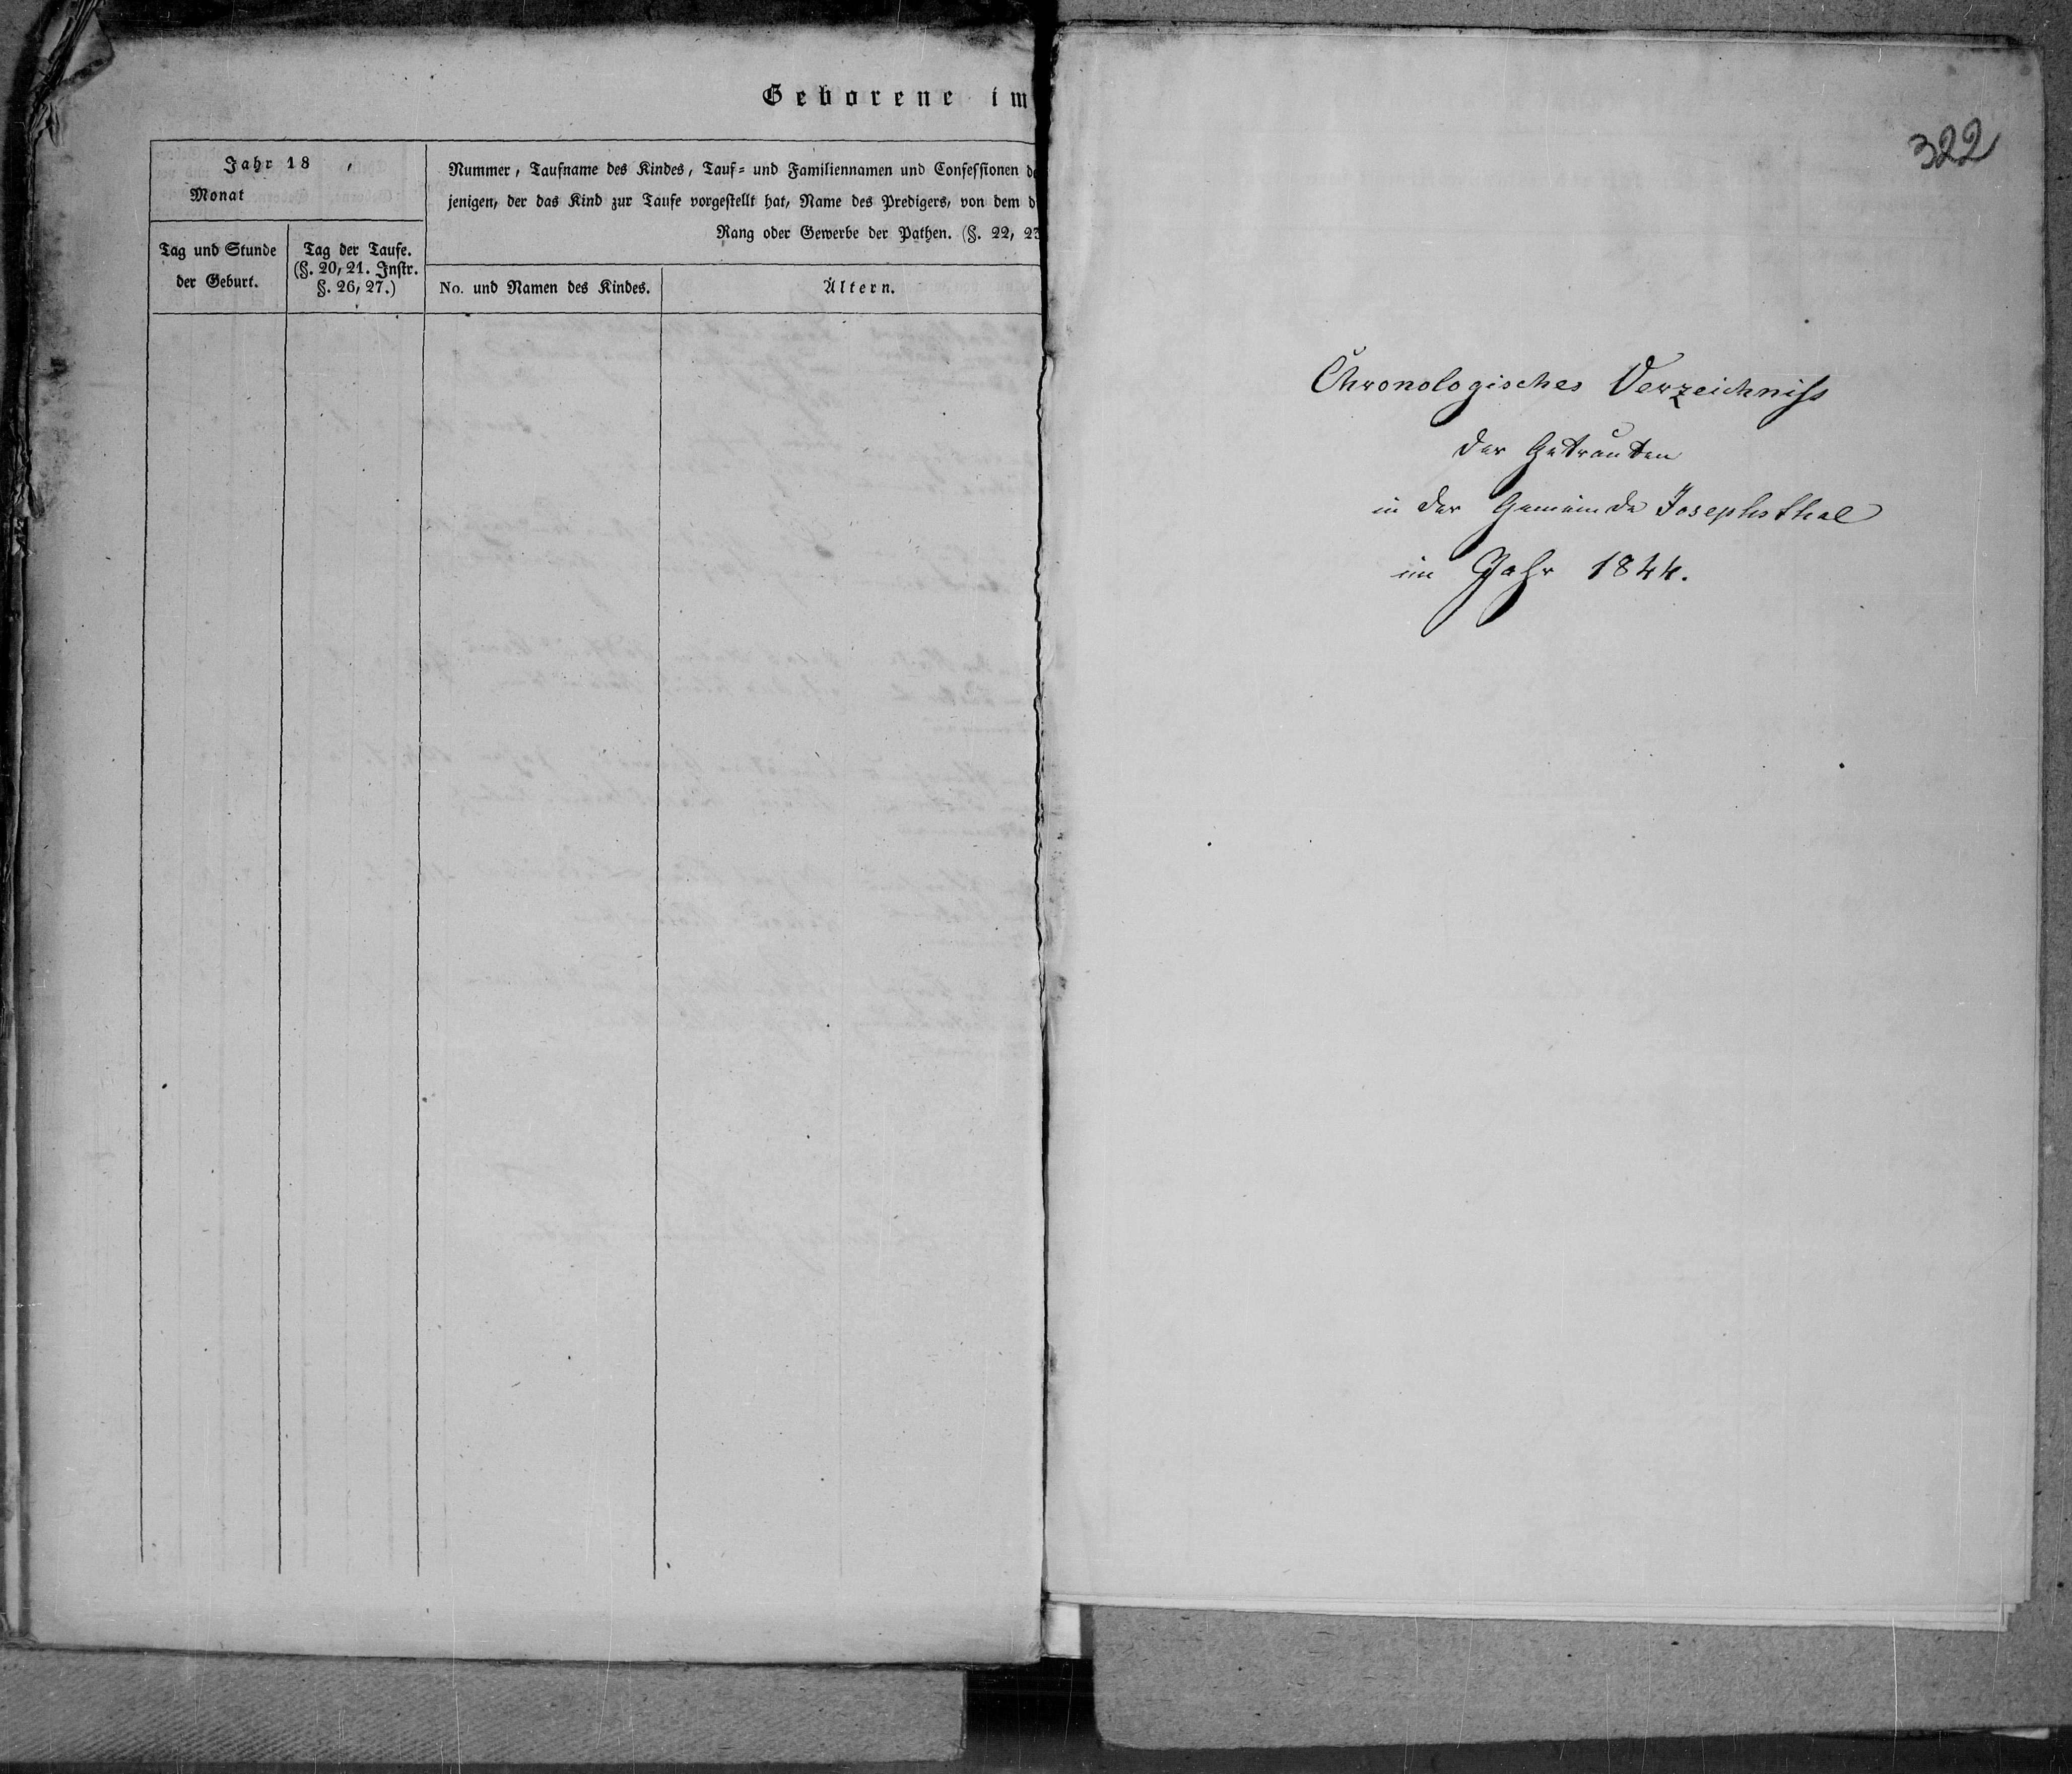 Geborene im
Jahr 18 ,
Monat
Nummer, Taufname des Kindes, Tauf- und Familiennamen und Confessionen
jenigen, der das Kind zur Taufe vorgestellt hat, Name des Predigers, von dem
Rang oder Gewerbe der Pathen. (§. 22, 23
Tag und Stunde
der Geburt.
Tag der Taufe.
(§. 20, 21. Instr.
§. 26, 27.)
No. und Namen des Kindes.
Ältern.
322
Chronologisches Verzeichniß
der Getrauten
in der Gemeinde Josephsthal
im Jahr 1844.